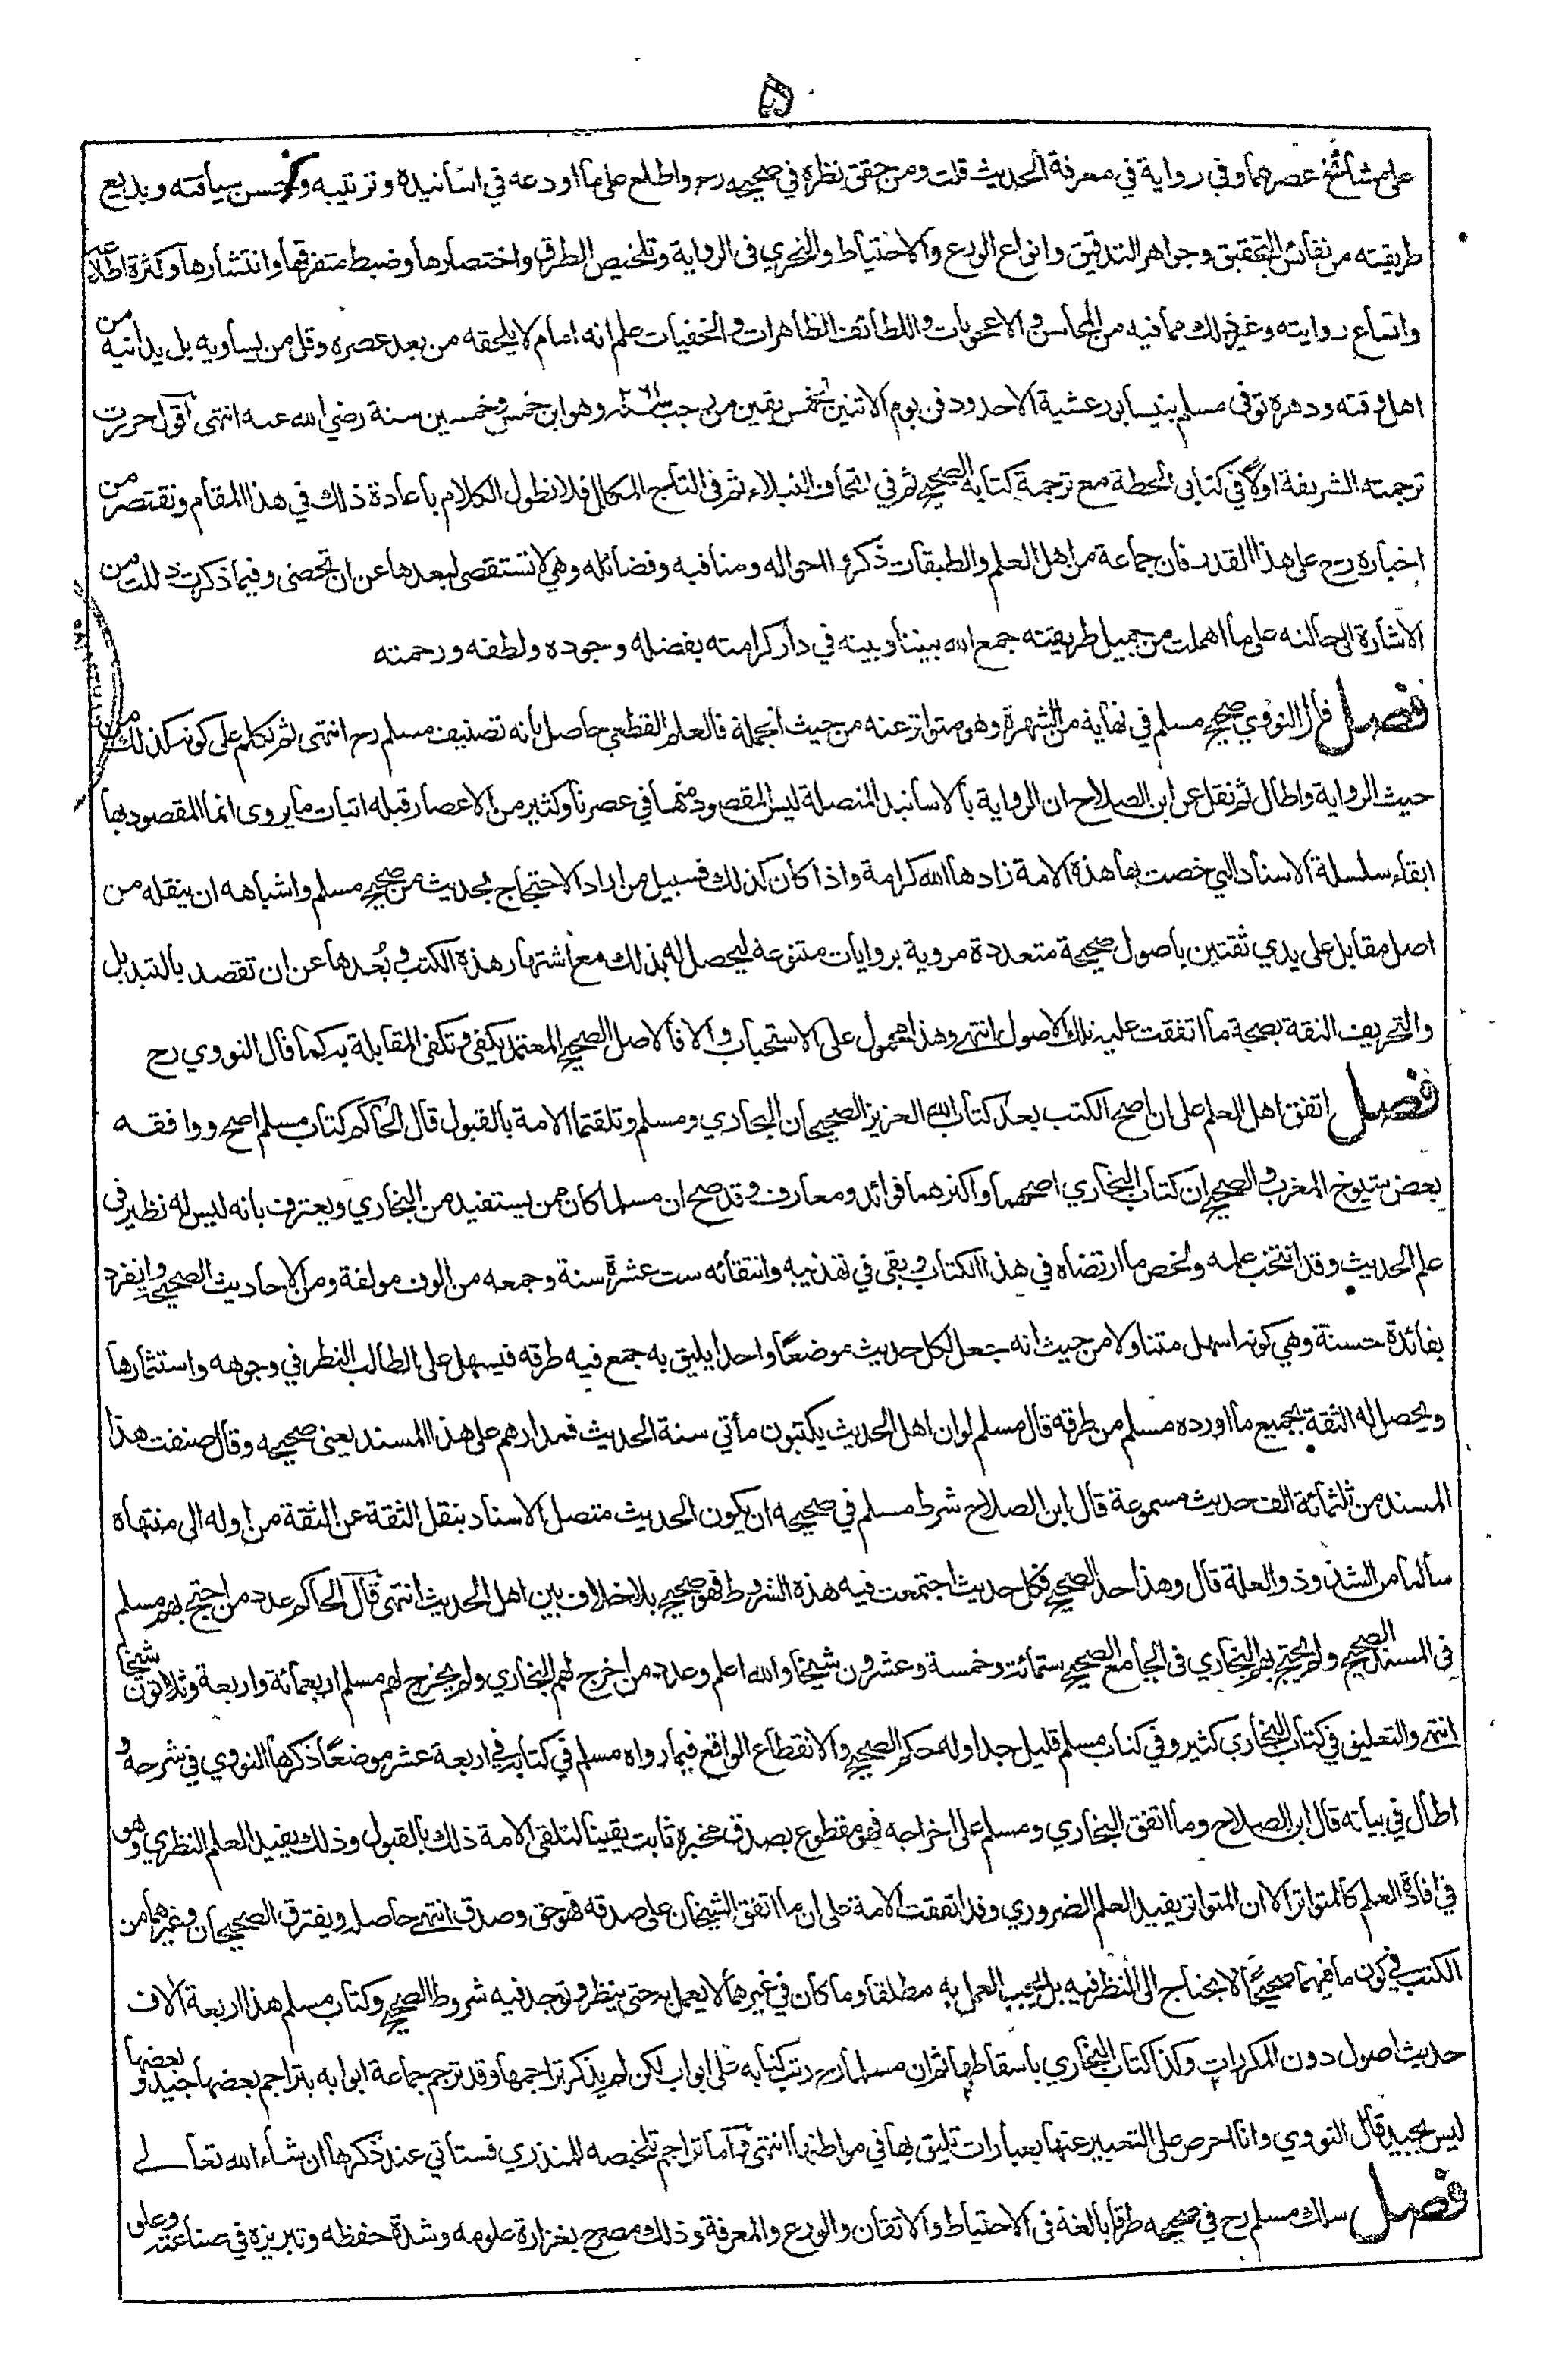 ۵
على مشائخ عصرهما وفي رواية في معرفة الحديث قلت ومن حقق نظره في صحيحه رح واطلع على ما اودعه في اسانيده وترتيبه وحسن سياقته وبديع
طريقته من نفائس التحقيق وجواهر التدقيق وانواع الورع والاحتياط والتحري فى الرواية وتلخيص الطرق واختصارها وضبط متفرقها وانتشارها وكثرة اطلاعه
واتساع روايته وغير ذلك مما فيه من المحاسن والاعجوبات واللطائف الظاهرات والخفيات علم انه امام لا يلحقه من بعد عصره وقل من يساويه بل يدانيه من
اهل وقته ودهره توفى مسلم بنيسابور عشية الاحد ودفن يوم الاثنين لخمس بقين من رجب سنة ٢٦١ وهو ابن خمس وخمسين سنة رضي الله عنه انتهى اقول حررت
ترجمته الشريفة اولًا في كتابى الحطة مع ترجمة كتابه الصحيح ثم في اتحاف النبلاء ثم فى التاج المكلل فلا نطول الكلام باعادة ذلك في هذا المقام ونقتصر من
اخباره رح على هذا القدر فان جماعة من اهل العلم والطبقات ذكروا احواله ومناقبه وفضائله وهي لا تستقصى لبعدها عن ان تحصى وفيما ذكرت دللت من
الاشارة الى حالته على ما اهملت من جميل طريقته جمع الله بيننا وبينه في دار كرامته بفضله وجوده ولطفه ورحمته
فصل قال النووي صحيح مسلم في نهاية من الشهرة وهو متواتر عنه من حيث الجملة فالعلم القطعي حاصل بانه تصنيف مسلم رح انتهى ثم تكلم على كونه كذلك من
حيث الرواية واطال ثم نقل عن ابن الصلاح ان الرواية بالاسانيد المتصلة ليس المقصود منها في عصرنا وكثير من الاعصار قبله اثبات ما يروى انما المقصود بها
ابقاء سلسلة الاسناد التي خصت بها هذة الامة زادها الله كرامة واذا كان كذلك فسبيل من اراد الاحتجاج بحديث من صحيح مسلم واشباهه ان ينقله من
اصل مقابل على يدي ثقتين باصول صحيحة متعددة مروية بروايات متنوعة ليحصل له بذلك مع اشتهار هذة الكتب وبُعدها عن ان تقصد بالتبديل
والتحريف الثقة بصحة ما اتفقت عليه تلك الاصول انتهى وهذا محمول على الاستحباب والا فالاصل الصحيح المعتمد يكفي وتكفى المقابلة به كما قال النووي رح
فصل اتفق اهل العلم على ان اصح الكتب بعد كتاب الله العزيز الصحيحان البخاري ومسلم وتلقتهما الامة بالقبول قال الحاكم كتاب مسلم اصح ووافقه
بعض شيوخ المغرب والصحيح ان كتاب البخاري اصحهما واكثرهما فوائد ومعارف وقد صح ان مسلما كان ممن يستفيد من البخاري ويعترف بانه ليس له نظير فى
علم الحديث وقد انتخب علمه ولخص ما ارتضاه في هذا الكتاب وبقى في تهذيبه وانتقائه ست عشرة سنة وجمعه من الوف مولفة ومن الاحاديث الصحيح وانفرد
بفائدة حسنة وهي كونه اسهل متناولا من حيث انه جعل لكل حديث موضعًا واحدا يليق به جمع فيه طرقه فيسهل على الطالب النظر في وجوهه واستثمارها
ويحصل له الثقة بجميع ما اورده مسلم من طرقه قال مسلم لو ان اهل الحديث يكتبون مأتي سنة الحديث فمدارهم على هذا المسند يعني صحيحه وقال صنفت هذا
المسند من ثلثمائة الف حديث مسموعة قال ابن الصلاح شرط مسلم في صحيحه ان يكون الحديث متصل الاسناد بنقل الثقة عن الثقة من اوله الى منتهاه
سالما من الشذوذ والعلة قال وهذا حد الصحيح فكل حديث اجتمعت فيه هذه الشروط فهو صحيح بلا خلاف بين اهل الحديث انتهى قال الحاكم عدد من احتج بهم مسلم
في المسند الصحيح ولم يحتج بهم البخاري فى الجامع الصحيح ستمائة وخمسة وعشرون شيخا والله اعلم وعدد من اخرج لهم البخاري ولم يخرج لهم مسلم اربعمائة واربعة وثلاثون شيخا
انتهى والتعليق في كتاب البخاري كثير وفي كتاب مسلم قليل جدا وله حكم الصحيح والانقطاع الواقع فيما رواه مسلم في كتابه في اربعة عشر موضعًا ذكرها النووي في شرحه و
اطال في بيانه قال ابن الصلاح وما اتفق البخاري ومسلم على اخراجه فهو مقطوع بصدق مخبره ثابت يقينا لتلقي الامة ذلك بالقبول وذلك يفيد العلم النظري وهو
في افادة العلم كالمتواتر الا ان المتواتر يفيد العلم الضروري وقد اتفقت الامة على ان ما اتفق الشيخان على صدقه فهو حق وصدق انتهى حاصله ويفترق الصحيحان وغيرهما من
الكتب في كون ما فيهما صحيحًا لا يحتاج الى النظر فيه بل يجب العمل به مطلقا وما كان في غيرهما لا يعمل به حتى ينظر وتوجد فيه شروط الصحيح وكتاب مسلم هذا اربعة الاف
حديث اصول دون المكررات وكذا كتاب البخاري باسقاطها ثم ان مسلما رح رتب كتابه على ابواب لكن لم يذكر تراجمها وقد ترجم جماعة ابوابه بتراجم بعضها جيد و بعضها
ليس بجيد قال النووي وانا احرص على التعبير عنها بعبارات تليق بها في مواطنها انتهى واما تراجم تلخيصه للمنذري فستاتي عند ذكرها ان شاء الله تعالے
فصل سلك مسلم رح في صحيحه طرقا بالغة فى الاحتياط والاتقان والورع والمعرفة وذلك مصرح بغزارة علومه وشدة حفظه وتبريزه في صناعته وعلو